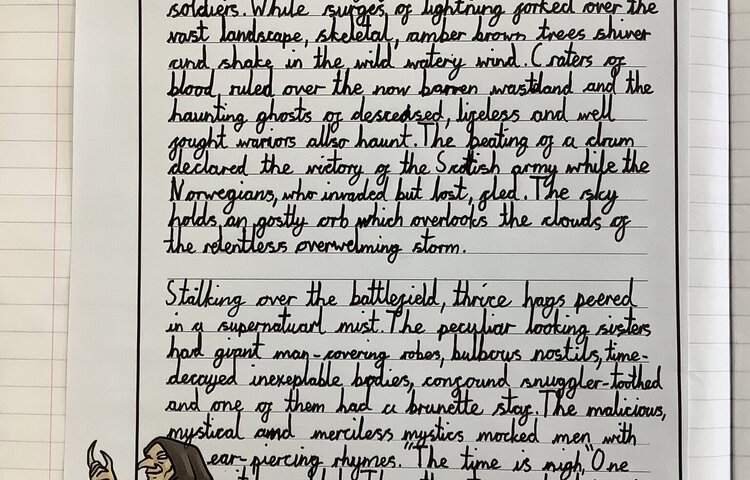 soldiers. While surges of lightning forked over the
vast landscape, skeletal, amber brown trees shiver
and shake in the wild watery wind. Craters of
blood ruled over the now barren wastland and the
haunting ghosts of descedsed, lifeless and well
fought wariors allso haunt. The beating of a drum
declared the victory of the Scotish army while the
Norwegians, who invaded but lost, fled. The sky
holds an gostly orb which overlooks the clouds of
the relentless overwelming storm.
Stalking over the battlefield, thrice hags peered
in a supernatuarl mist. The peculiar looking sisters
had giant man-covering robes, bulbous nostils, time-
decayed inexeplable bodies, confound snuggler-toothed
and one of them had a brunette staf. The malicious,
mystical and merciless mystics mocked men with
ear-piercing rhymes. "The time is nigh," One